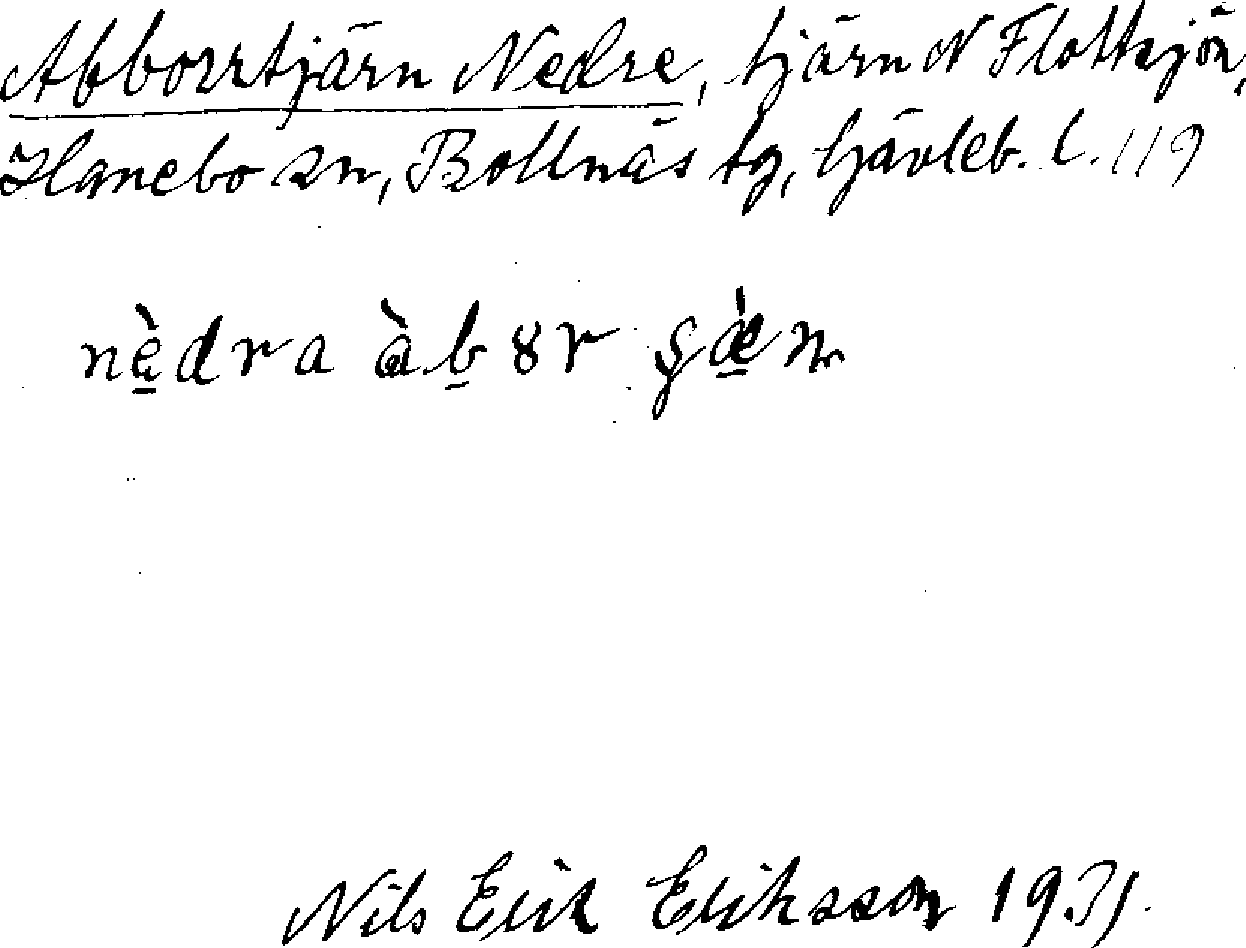 Abborrtjärn Nedre, tjärn N Flottsjön,
Hanebo sn, Bollnäs tg, Gävleb. l. 119
nèdra àb8r ʂæ̀n
Nils Erik Eriksson 1931.